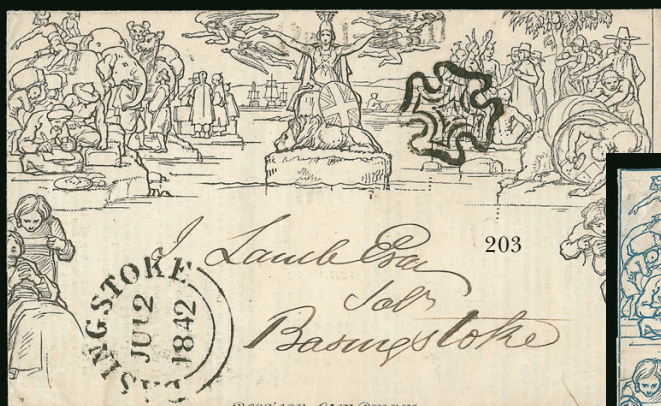 J Lamb Esq
203
Solr
Basingstoke
BASINGSTOKE
JU 2
1842